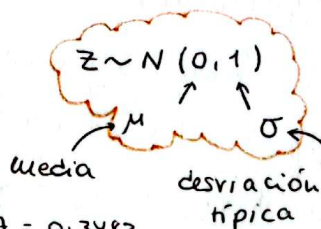 Z ~ N (0, 1)
μ σ
media
desviación
típica
= 0,3483